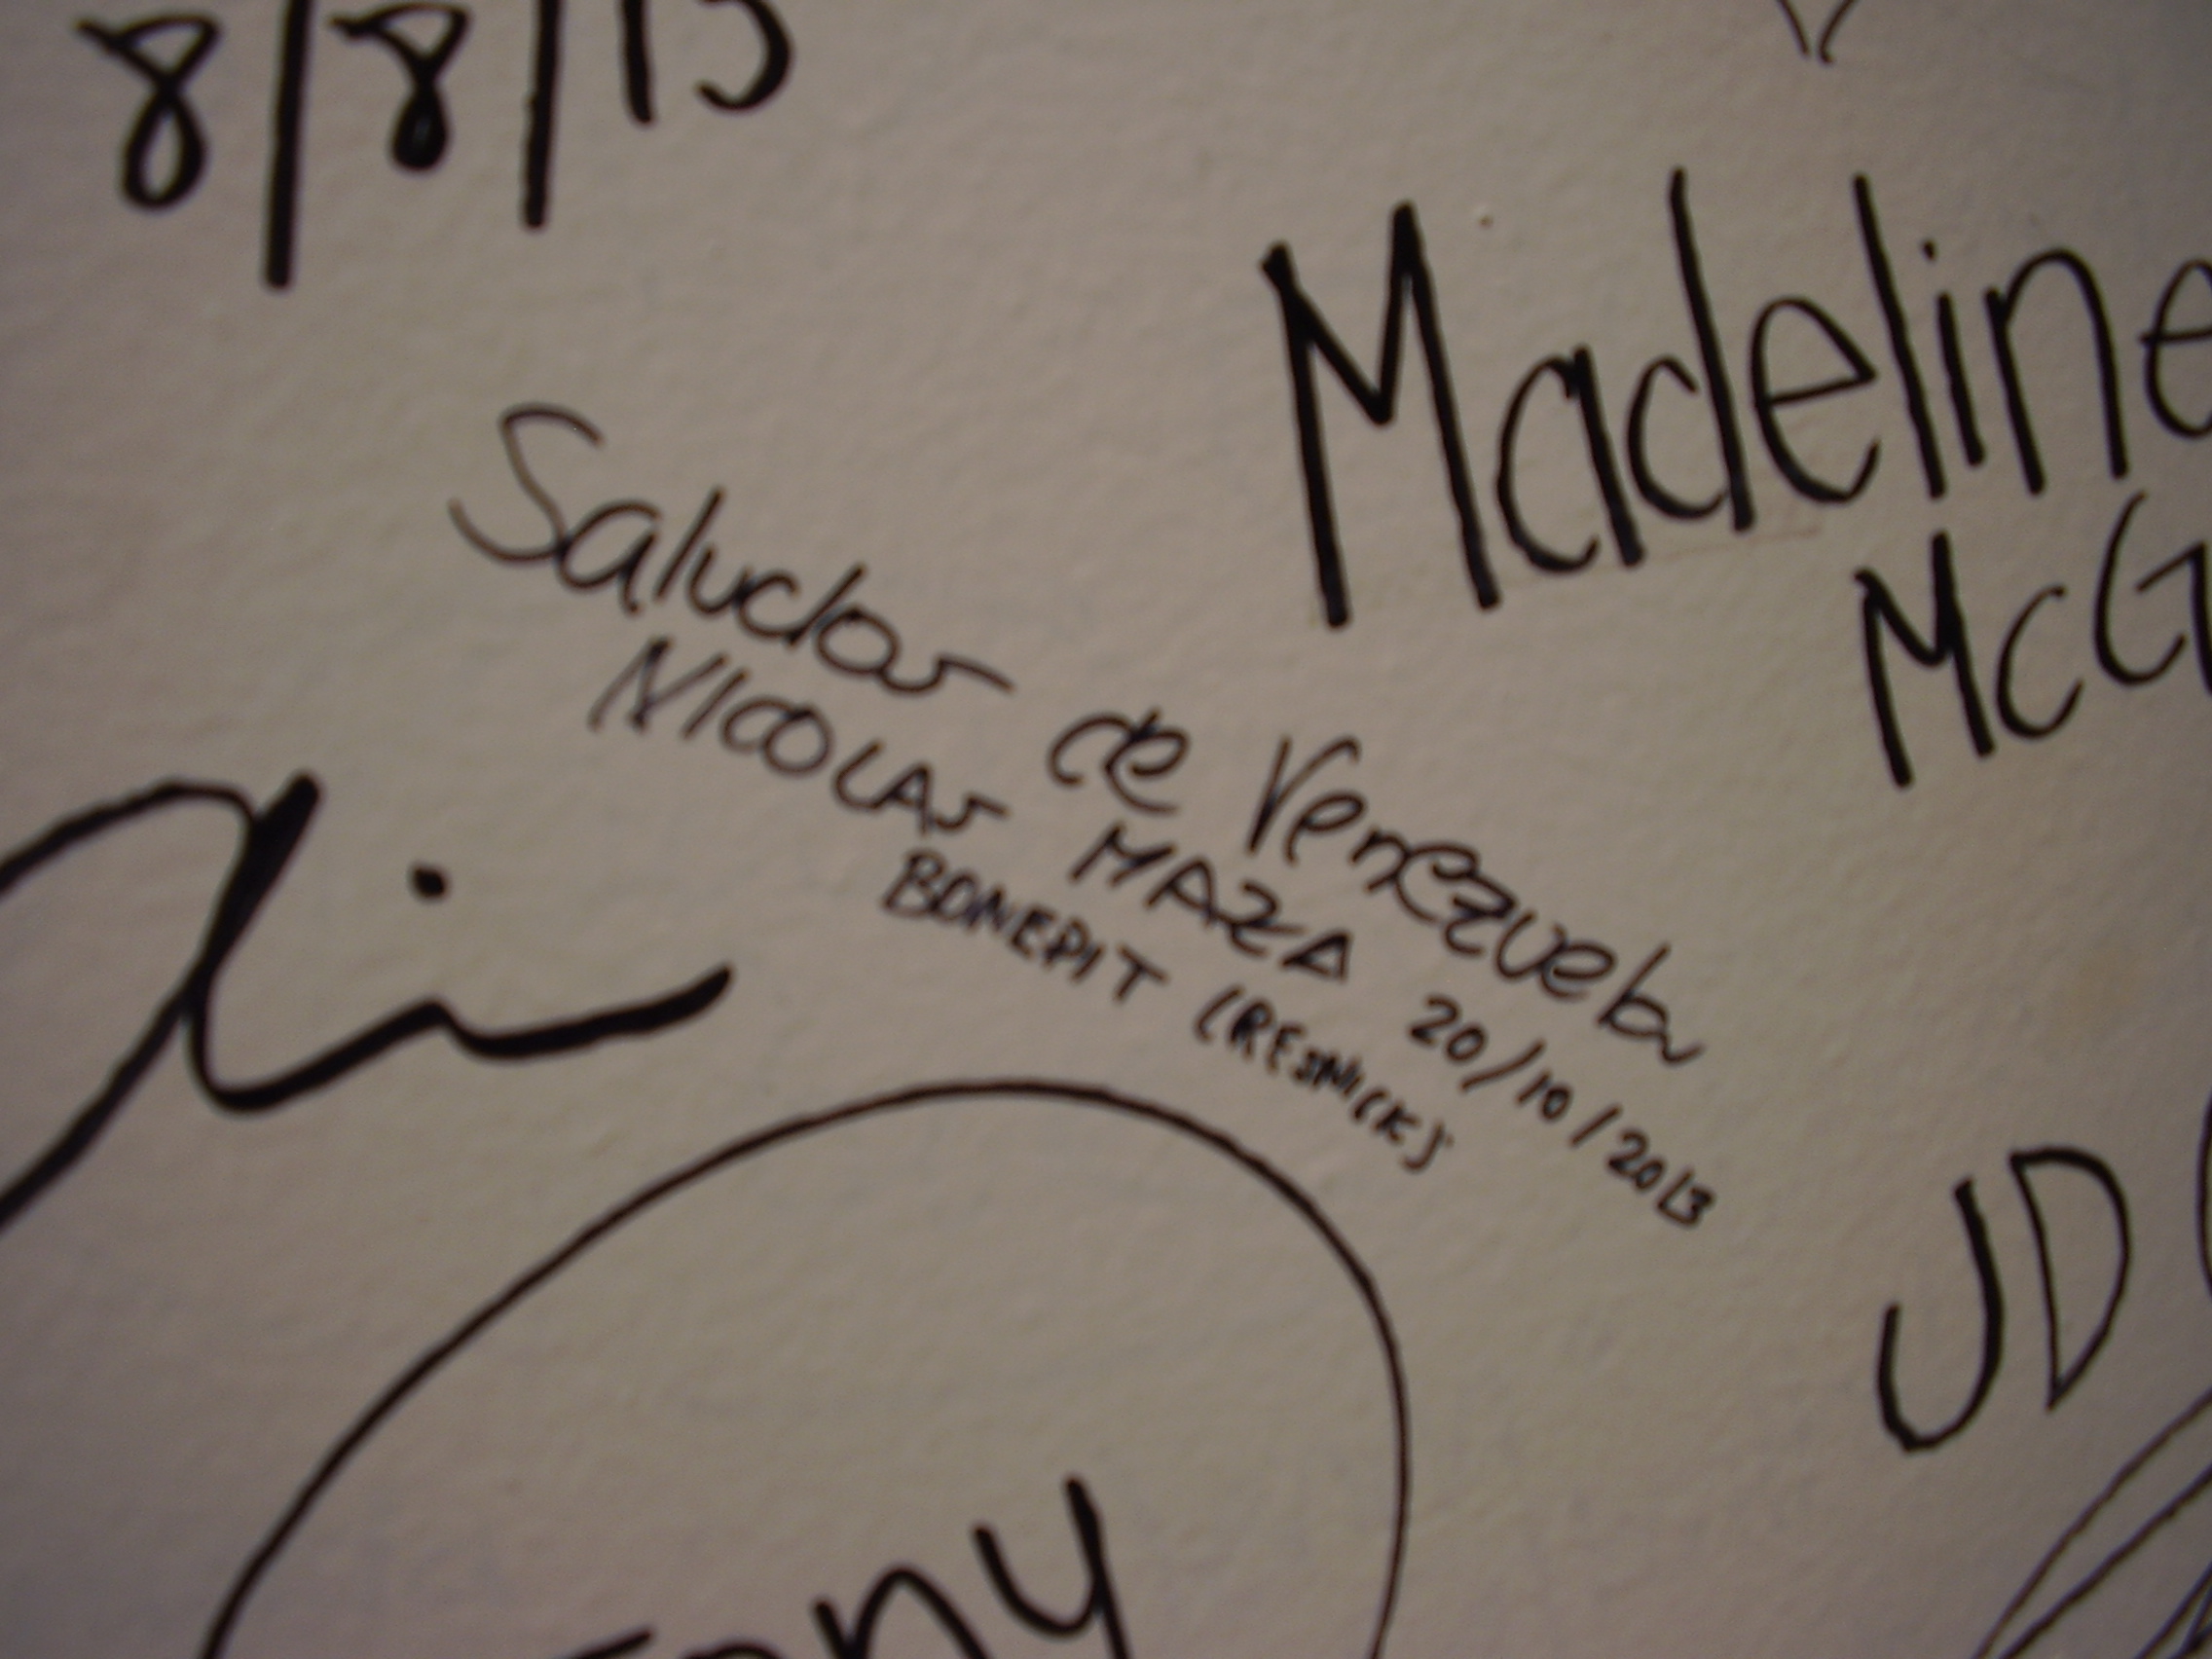 8/8/13
Madeline
McG
Saludos de Venezuela
NICOLAS MAZA 20/10/2013
BONEPIT (RESNICK)
JD